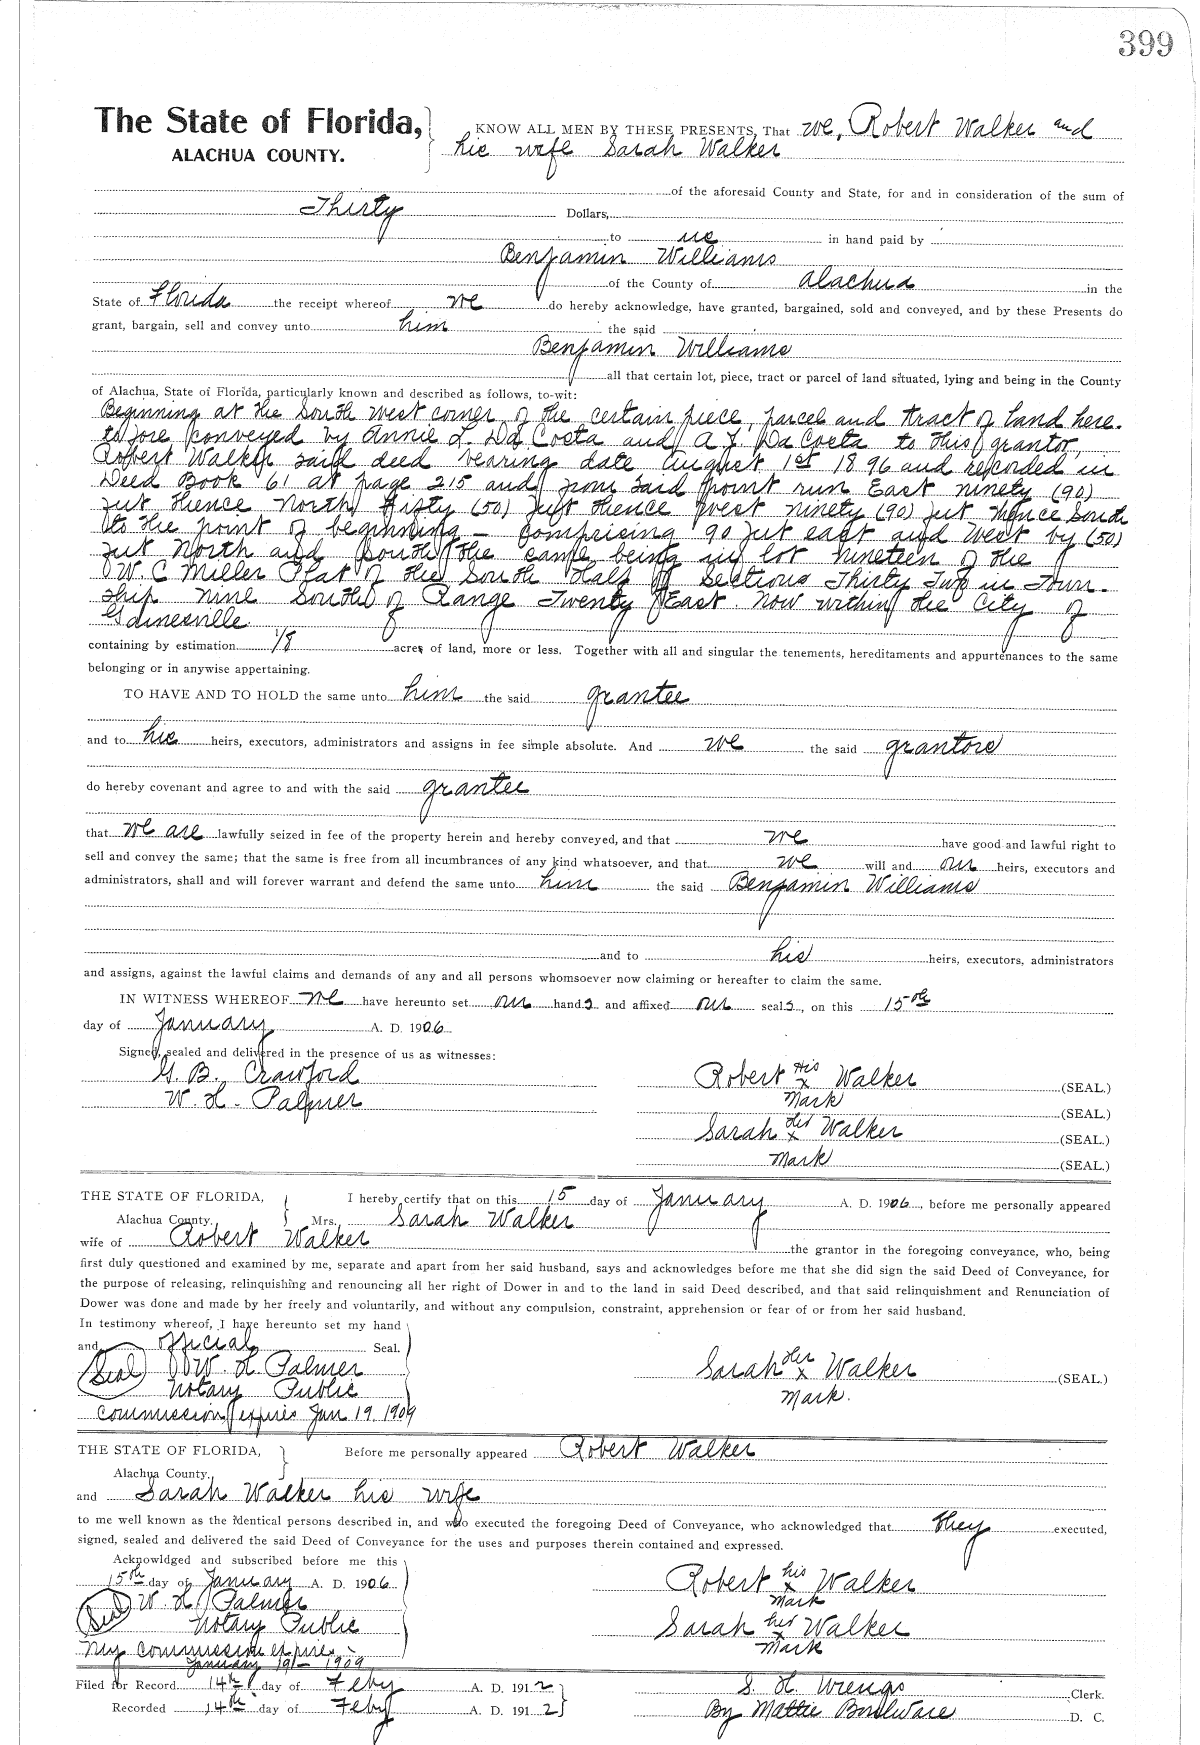 399
The State of Florida,
ALACHUA COUNTY.
KNOW ALL MEN BY THESE PRESENTS, That we, Robert Walker and
his wife Sarah Walker
of the aforesaid County and State, for and in consideration of the sum of
Thirty Dollars,
to us in hand paid by
Benjamin Williams
of the County of Alachua in the
State of Florida the receipt whereof we do hereby acknowledge, have granted, bargained, sold and conveyed, and by these Presents do
grant, bargain, sell and convey unto him the said
Benjamin Williams
all that certain lot, piece, tract or parcel of land situated, lying and being in the County
of Alachua, State of Florida, particularly known and described as follows, to-wit:
Beginning at the South West corner of the certain piece, parcel and tract of land here-
tofore conveyed by Annie L. Da Costa and A. J. Da Costa to this grantor,
Robert Walker said deed bearing date August 1st 1896 and recorded in
Deed Book 61 at page 215 and from said point run East ninety (90)
feet thence North Fifty (50) feet thence West ninety (90) feet thence South
to the point of beginning - comprising 90 feet east and West by (50)
feet North and South the same being in lot nineteen of the
W. C Miller Plat of the South Half of Sections Thirty Two in Town-
ship nine South of Range Twenty East. Now within the City of
Gainesville
containing by estimation 1/8 acres of land, more or less. Together with all and singular the tenements, hereditaments and appurtenances to the same
belonging or in anywise appertaining.
TO HAVE AND TO HOLD the same unto him the said grantee
and to his heirs, executors, administrators and assigns in fee simple absolute. And we the said grantors
do hereby covenant and agree to and with the said grantee
that we are lawfully seized in fee of the property herein and hereby conveyed, and that we have good and lawful right to
sell and convey the same; that the same is free from all incumbrances of any kind whatsoever, and that we will and our heirs, executors and
administrators, shall and will forever warrant and defend the same unto him the said Benjamin Williams
and to his heirs, executors, administrators
and assigns, against the lawful claims and demands of any and all persons whomsoever now claiming or hereafter to claim the same.
IN WITNESS WHEREOF we have hereunto set our hands and affixed our seals, on this 15th
day of January A. D. 1906
Signed, sealed and delivered in the presence of us as witnesses:
G. B. Crawford
W. H. Palmer
Robert His x Walker (SEAL.)
Mark (SEAL.)
Sarah her x Walker (SEAL.)
Mark (SEAL.)
THE STATE OF FLORIDA,
Alachua County.
I hereby certify that on this 15 day of January A. D. 1906, before me personally appeared
Mrs. Sarah Walker
wife of Robert Walker the grantor in the foregoing conveyance, who, being
first duly questioned and examined by me, separate and apart from her said husband, says and acknowledges before me that she did sign the said Deed of Conveyance, for
the purpose of releasing, relinquishing and renouncing all her right of Dower in and to the land in said Deed described, and that said relinquishment and Renunciation of
Dower was done and made by her freely and voluntarily, and without any compulsion, constraint, apprehension or fear of or from her said husband.
In testimony whereof, I have hereunto set my hand
and official Seal.
(Seal) W. H. Palmer
Notary Public
Commission expires Jan 19, 1909
Sarah her x Walker (SEAL.)
Mark.
THE STATE OF FLORIDA,
Alachua County.
Before me personally appeared Robert Walker
and Sarah Walker his wife
to me well known as the identical persons described in, and who executed the foregoing Deed of Conveyance, who acknowledged that they executed,
signed, sealed and delivered the said Deed of Conveyance for the uses and purposes therein contained and expressed.
Acknowldged and subscribed before me this
15th day of January A. D. 1906
(Seal) W. H. Palmer
Notary Public
My commission expires
January 19 - 1909
Robert his x Walker
Mark
Sarah her x Walker
Mark
Filed for Record 14th day of Feby A. D. 1912
Recorded 14th day of Feby A. D. 1912
S. H. Wienges Clerk.
By Mattie Boulware D. C.